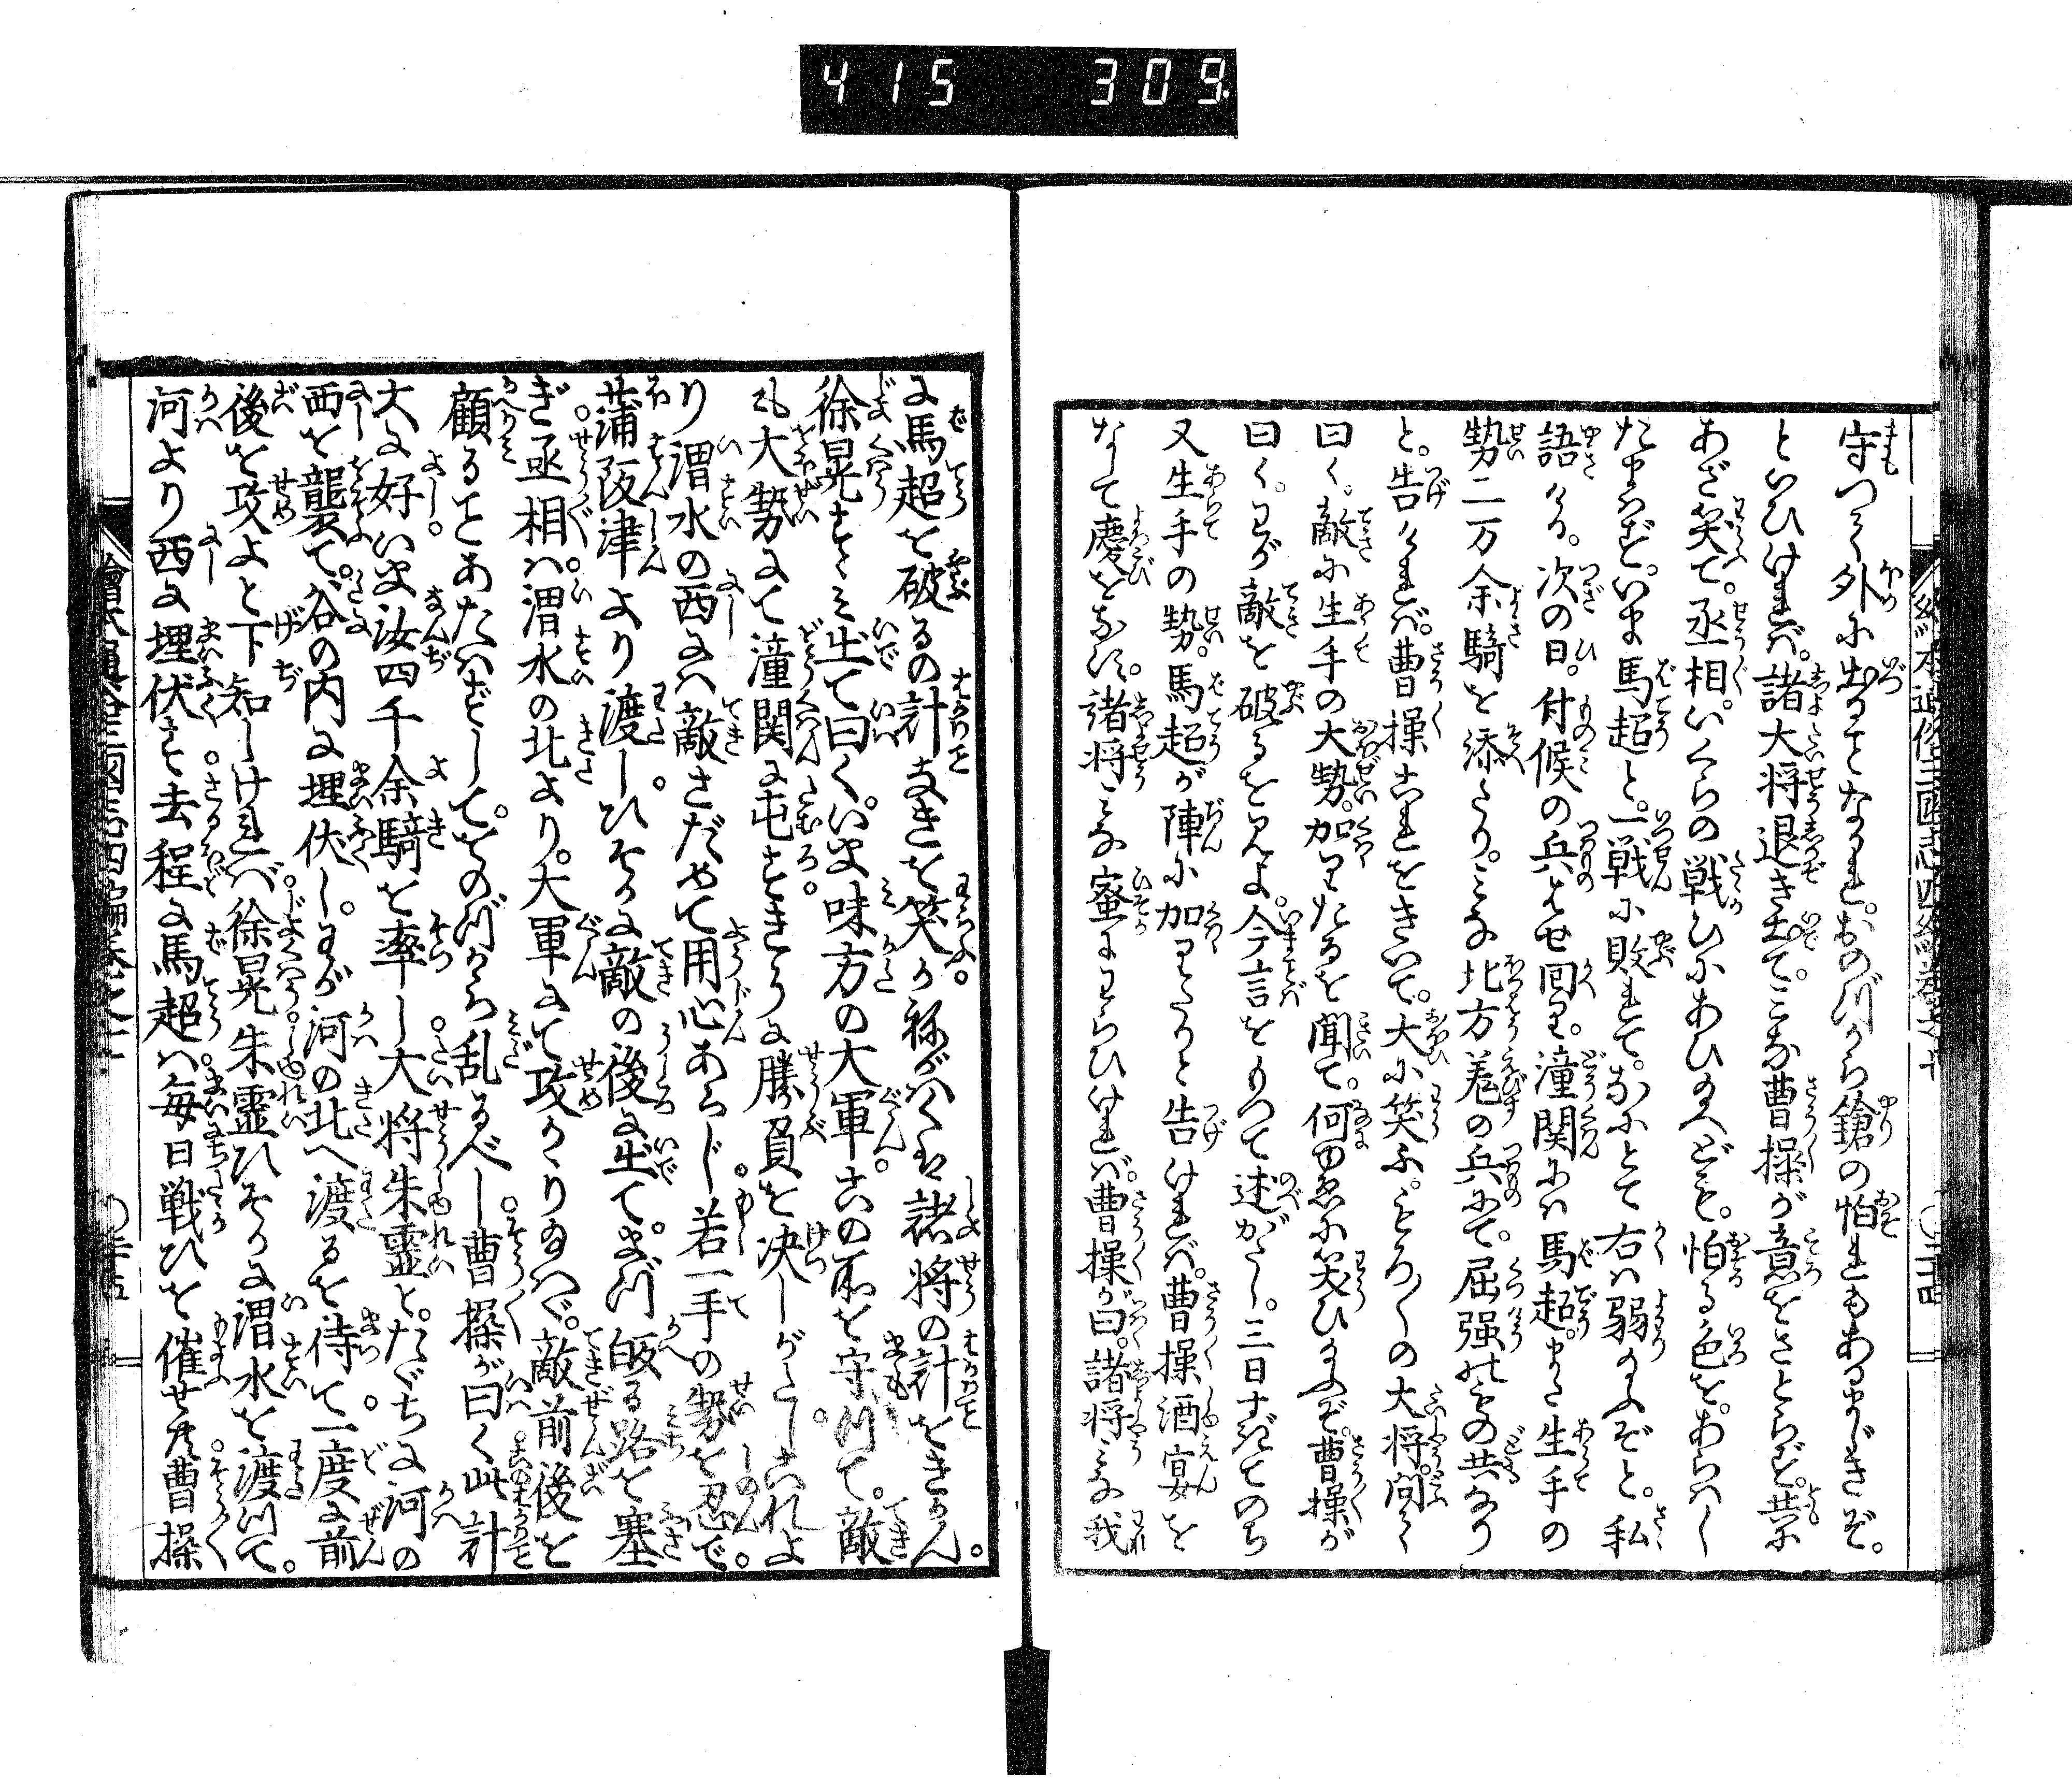 415 309
守つて外に出ることなかれ。おのづから鎗の怕れもあるまじきぞ。
といひければ。諸大将退き出て。こは曹操が意をさとらず。共に
あざ笑て。丞相。いくらの戦ひにあひ給へども。怕るゝ色を。あらはし
たまはず。いま馬超と。一戦に敗れて。なにとて右は弱り給ふぞと。私
語ける。次の日。付候の兵はせ回り。潼関には馬超。また生手の
勢二万余騎を添たり。みな北方羌の兵にて。屈強のもの共なり
と。告ければ。曹操これをきいて。大に笑ふ。もろ〳〵の大将。問て
曰く。敵に生手の大勢。加りたるを聞て。何ゆゑに笑ひ給ふぞ。曹操が
曰く。わが敵を破るを見よ。今言をもつて述がたし。三日すぎてのち
又生手の勢。馬超が陣に加りたりと告ければ。曹操酒宴を
なして慶をなす。諸将みな蜜にわらひければ。曹操が曰。諸将みな我
に馬超を破るの計なきを笑ふ。ねがはくは諸将の計をきかん。
徐晃すゝみ出て曰く。いま味方の大軍この所を守つて。敵
も大勢にて潼関に屯すときゝに勝負を决しがたし。これよ
り渭水の西には敵さだめて用心あらじ。若一手の勢を忍で。
蒲阪津より渡し。ひそかに敵の後に出て。まづ皈る路を塞
ぎ。丞相は渭水の北より。大軍にて攻かゝり給はゞ。敵前後を
顧ることあたはずして。おのづから乱るべし。曹操が曰く此計
大に好。いま汝四千余騎を率し。大将朱霊と。たゞちに河の
西を襲て。谷の内に埋伏し。わが河の北へ渡るを待て。一度に前
後を攻よと下知しければ。徐晃朱霊ひそかに渭水を渡つて。
河より西に埋伏す。去程に馬超は毎日戦ひを催せ共。曹操